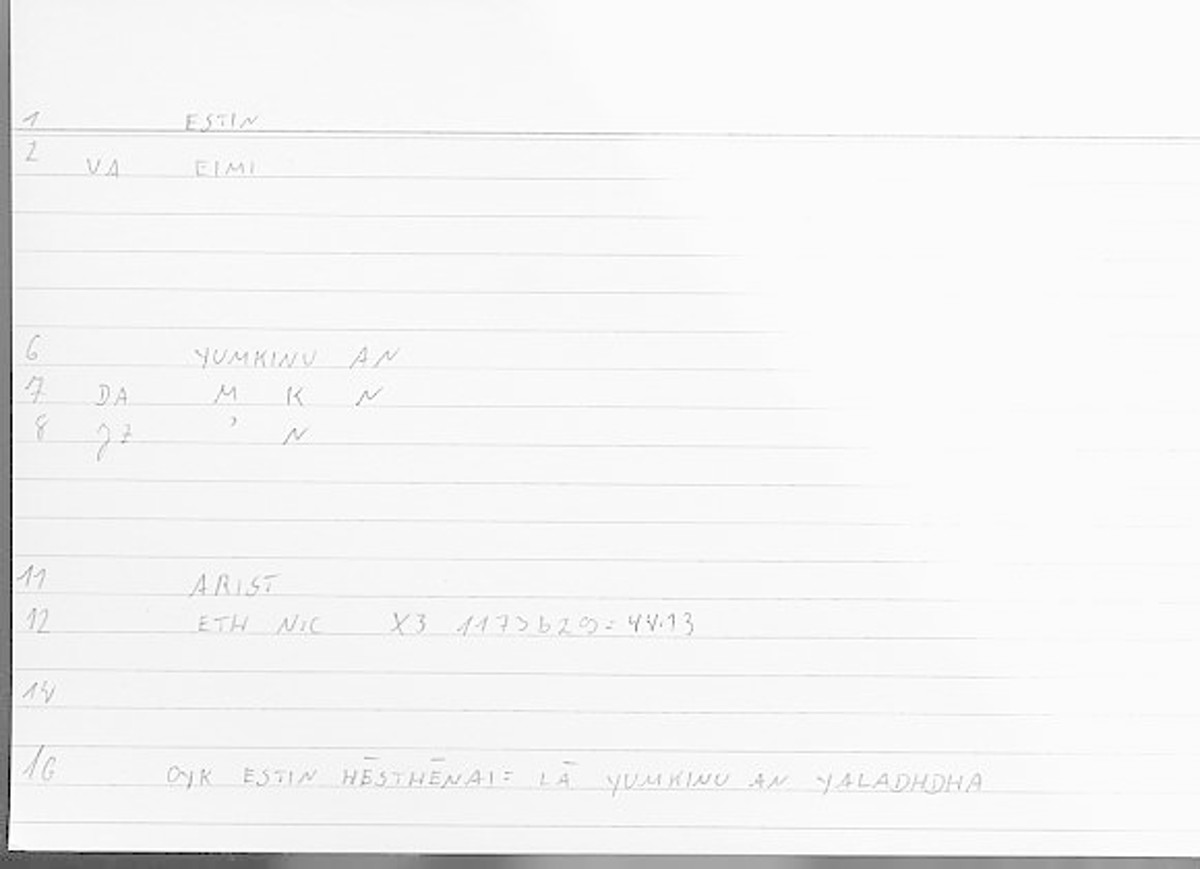 1 ESTIN
2 VA EIMI
6 YUMKINU AN
7 DA M K N
8 ' N
11 ARIST
12 ETH NIC X3 1173b29=44.13
14
16 OYK ESTIN HĒSTHĒNAI= LĀ YUMKINU AN YALADHDHA